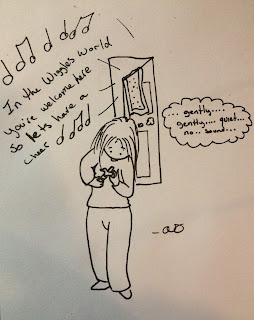 In the Wiggles World
you're welcome here
so lets have a
cheer
... gently....
gently.... quiet...
no.. sound...